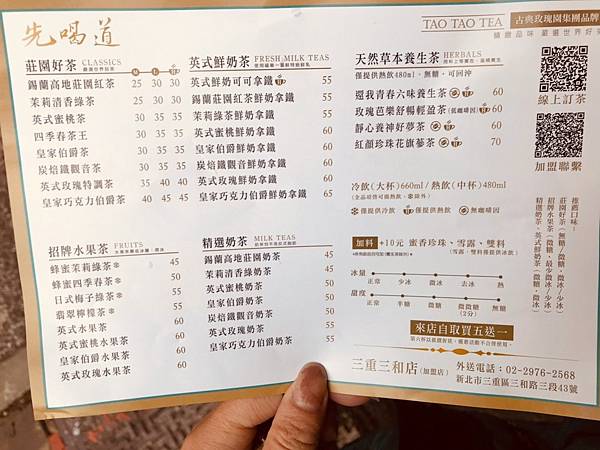 先喝道
TAO TAO TEA 古典玫瑰園集團品牌
精緻品味 嚴選世界好茶
莊園好茶 CLASSICS
嚴選世界莊茶
M L
錫蘭高地莊園紅茶 25 30 30
茉莉清香綠茶 25 30 30
英式蜜桃茶 30 35 35
四季春茶王 30 35 35
皇家伯爵茶 30 35 35
炭焙鐵觀音茶 30 35 35
英式玫瑰特調茶 35 40 40
皇家巧克力伯爵茶 40 45 45
英式鮮奶茶 FRESH MILK TEAS
英式鮮奶可可拿鐵 55
錫蘭莊園紅茶鮮奶拿鐵 55
茉莉綠茶鮮奶拿鐵 55
英式蜜桃鮮奶拿鐵 60
皇家伯爵鮮奶拿鐵 60
炭焙鐵觀音鮮奶拿鐵 60
英式玫瑰鮮奶拿鐵 60
皇家巧克力伯爵鮮奶拿鐵 65
天然草本養生茶 HERBALS
僅提供熱飲480ml，無糖，可回沖
還我青春六味養生茶 60
玫瑰芭樂舒暢輕盈茶(低咖啡因) 60
靜心養神好夢茶 60
紅顏珍珠花旗蔘茶 70
冷飲(大杯)660ml/熱飲(中杯)480ml
僅提供冷飲 僅提供熱飲 無咖啡因
線上訂茶
加盟聯繫
推薦口味：
莊園好茶(無糖/微糖，微冰/少冰)
招牌水果茶(微糖，最少微冰/少冰)
精選奶茶、英式鮮奶茶(微糖，微冰)
招牌水果茶 FRUITS
蜂蜜茉莉綠茶 45
蜂蜜四季春茶 50
日式梅子綠茶 55
翡翠檸檬茶 55
英式水果茶 60
英式蜜桃水果茶 60
皇家伯爵水果茶 60
英式玫瑰水果茶 60
精選奶茶 MILK TEAS
錫蘭高地莊園奶茶 45
茉莉清香綠奶茶 45
英式蜜桃奶茶 50
皇家伯爵奶茶 50
炭焙鐵觀音奶茶 50
英式玫瑰奶茶 55
皇家巧克力伯爵奶茶 55
加料 +10元 蜜香珍珠、雪露、雙料
(雪露、雙料僅提供冰飲)
冰量 正常 少冰 微冰 去冰 熱
甜度 正常 半糖 微糖 微微糖(2分) 無糖
來店自取買五送一
三重三和店(加盟店) 外送電話：02-2976-2568
新北市三重區三和路三段43號